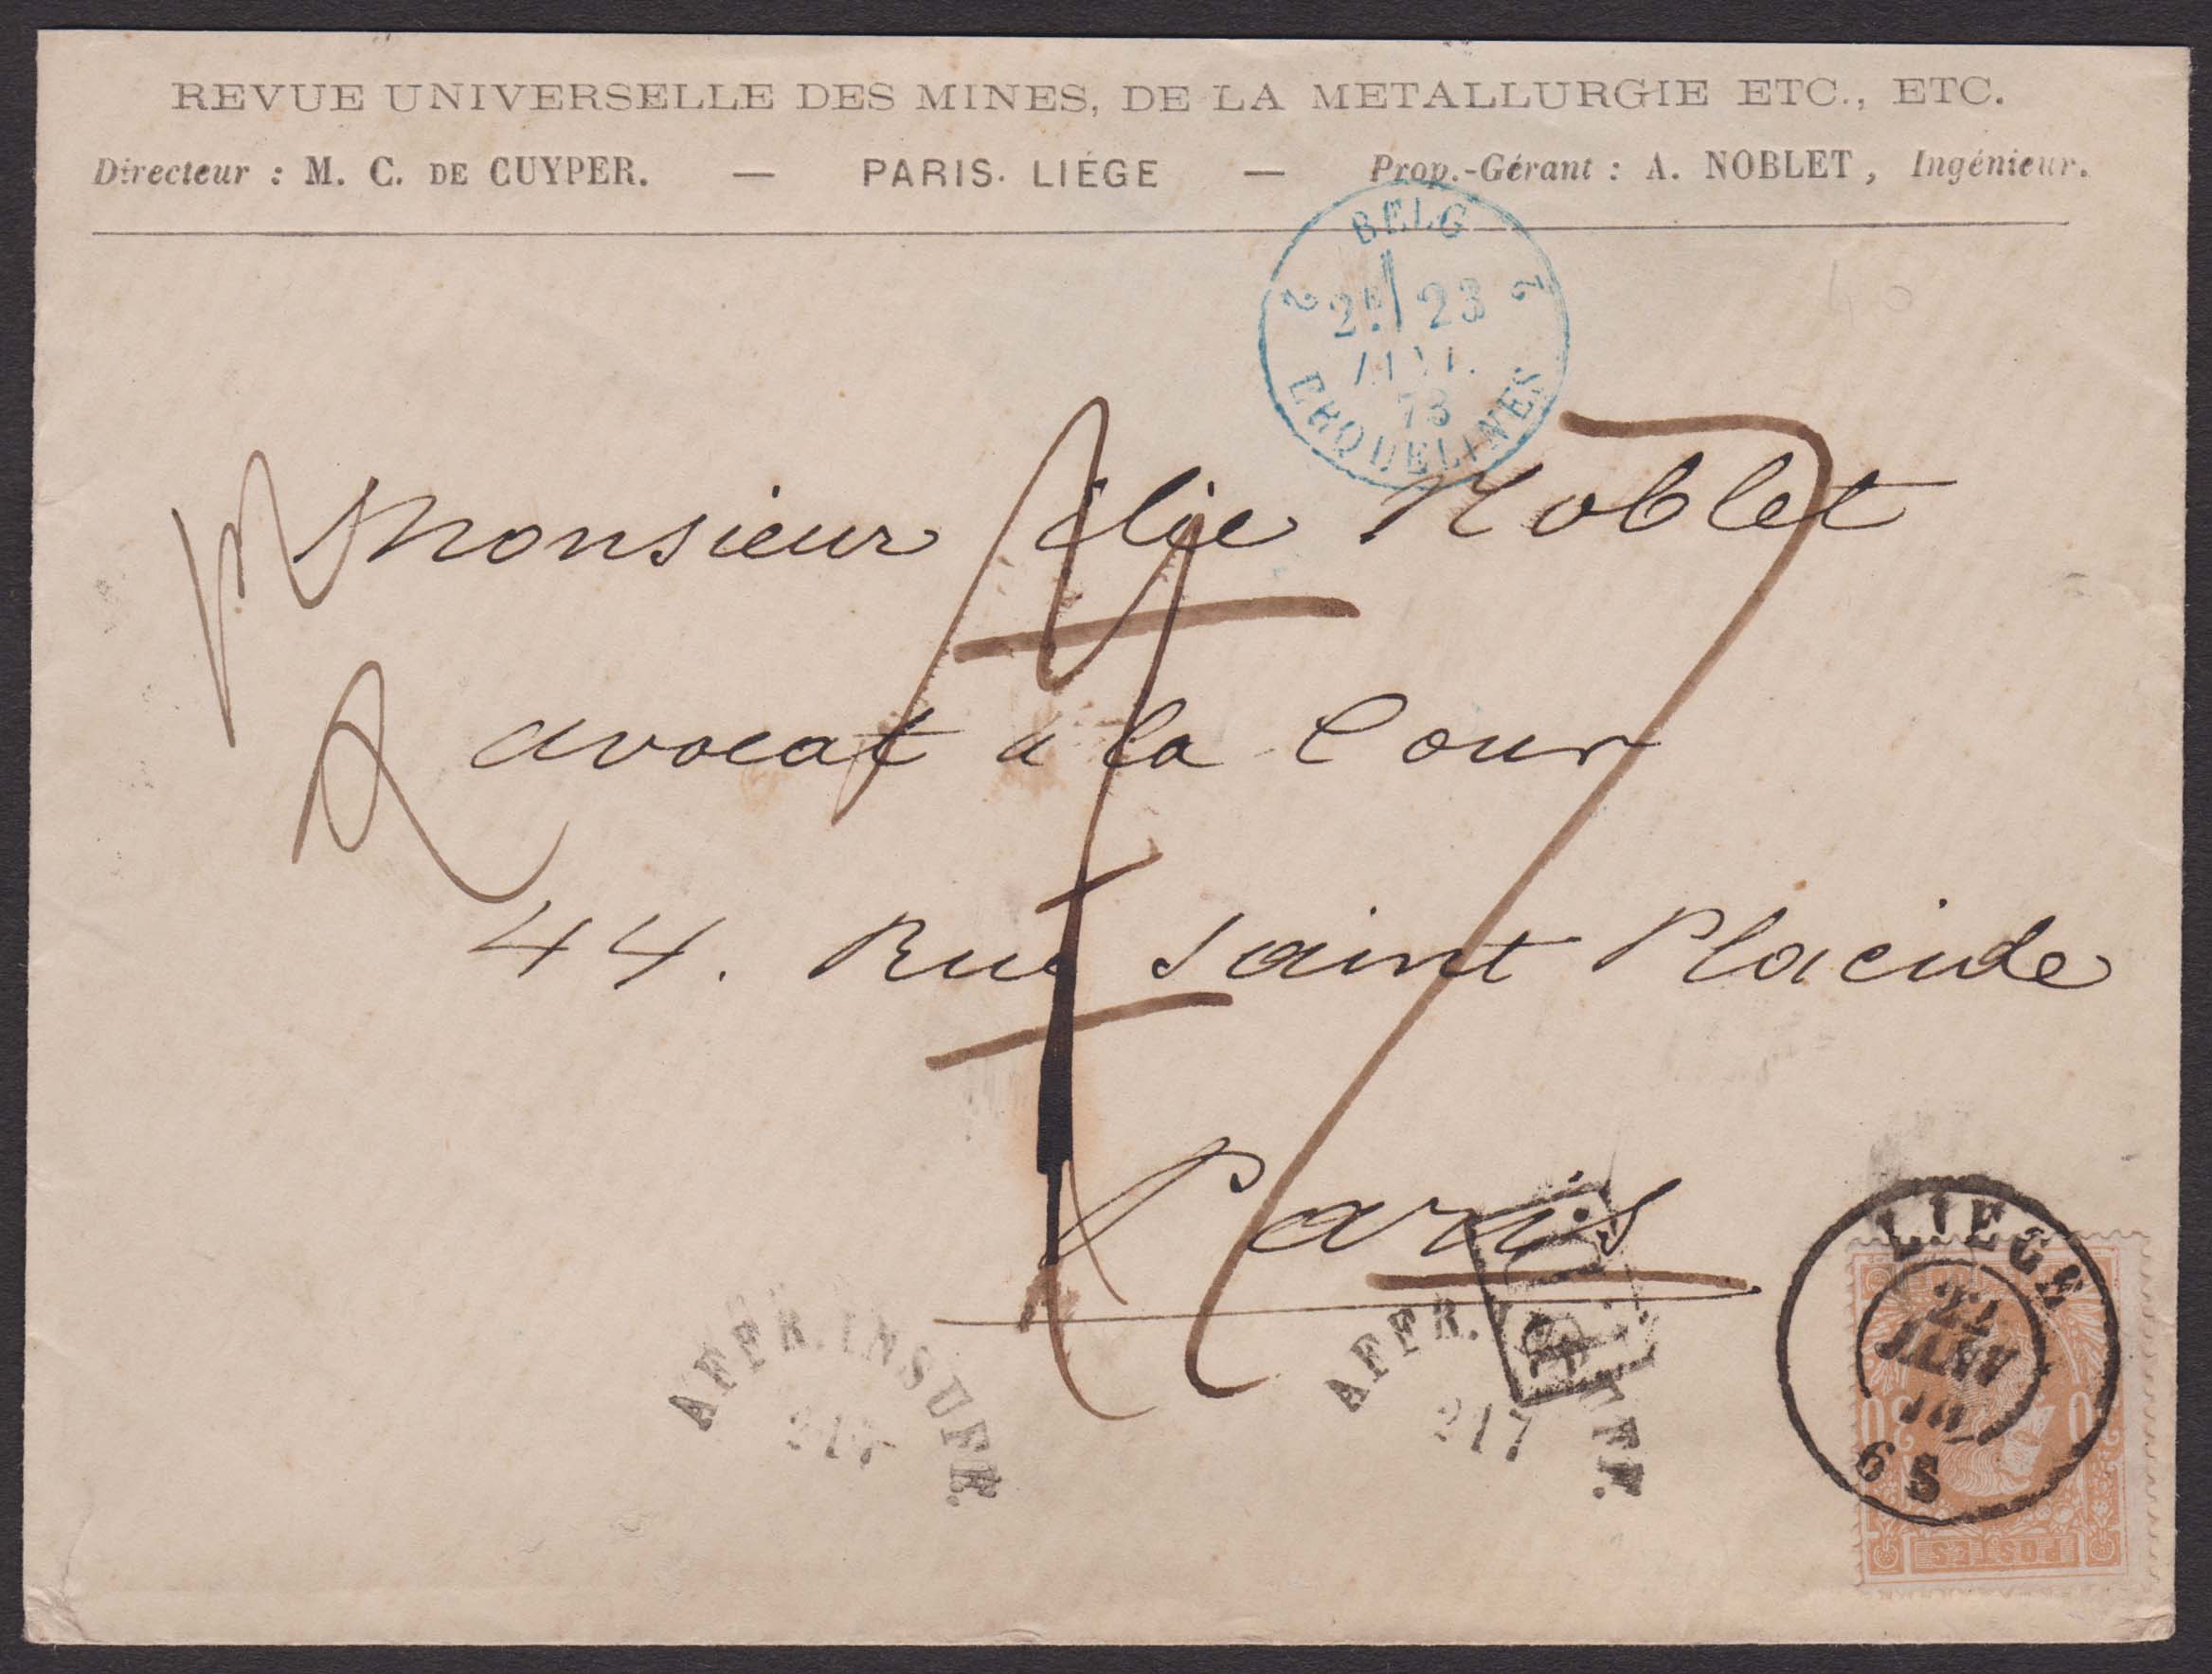 REVUE UNIVERSELLE DES MINES, DE LA METALLURGIE ETC., ETC.
Directeur : M. C. DE CUYPER. — PARIS. LIÉGE — Prop.-Gérant : A. NOBLET, Ingénieur.
BELG
2 2E 23 2
JANV.
73
ERQUELINES
Monsieur Elie Noblet
avocat à la Cour
44. Rue Saint Placide
Paris
AFFR. INSUFF.
217
AFFR. INSUFF.
217
LIEGE
22
JANV
6 S
30 30
POSTES
40